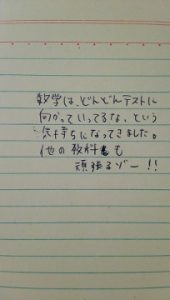 数学は、どんどんテストに
向かっていってるな、という
気持ちになってきました。
他の教科も
頑張るゾー!!